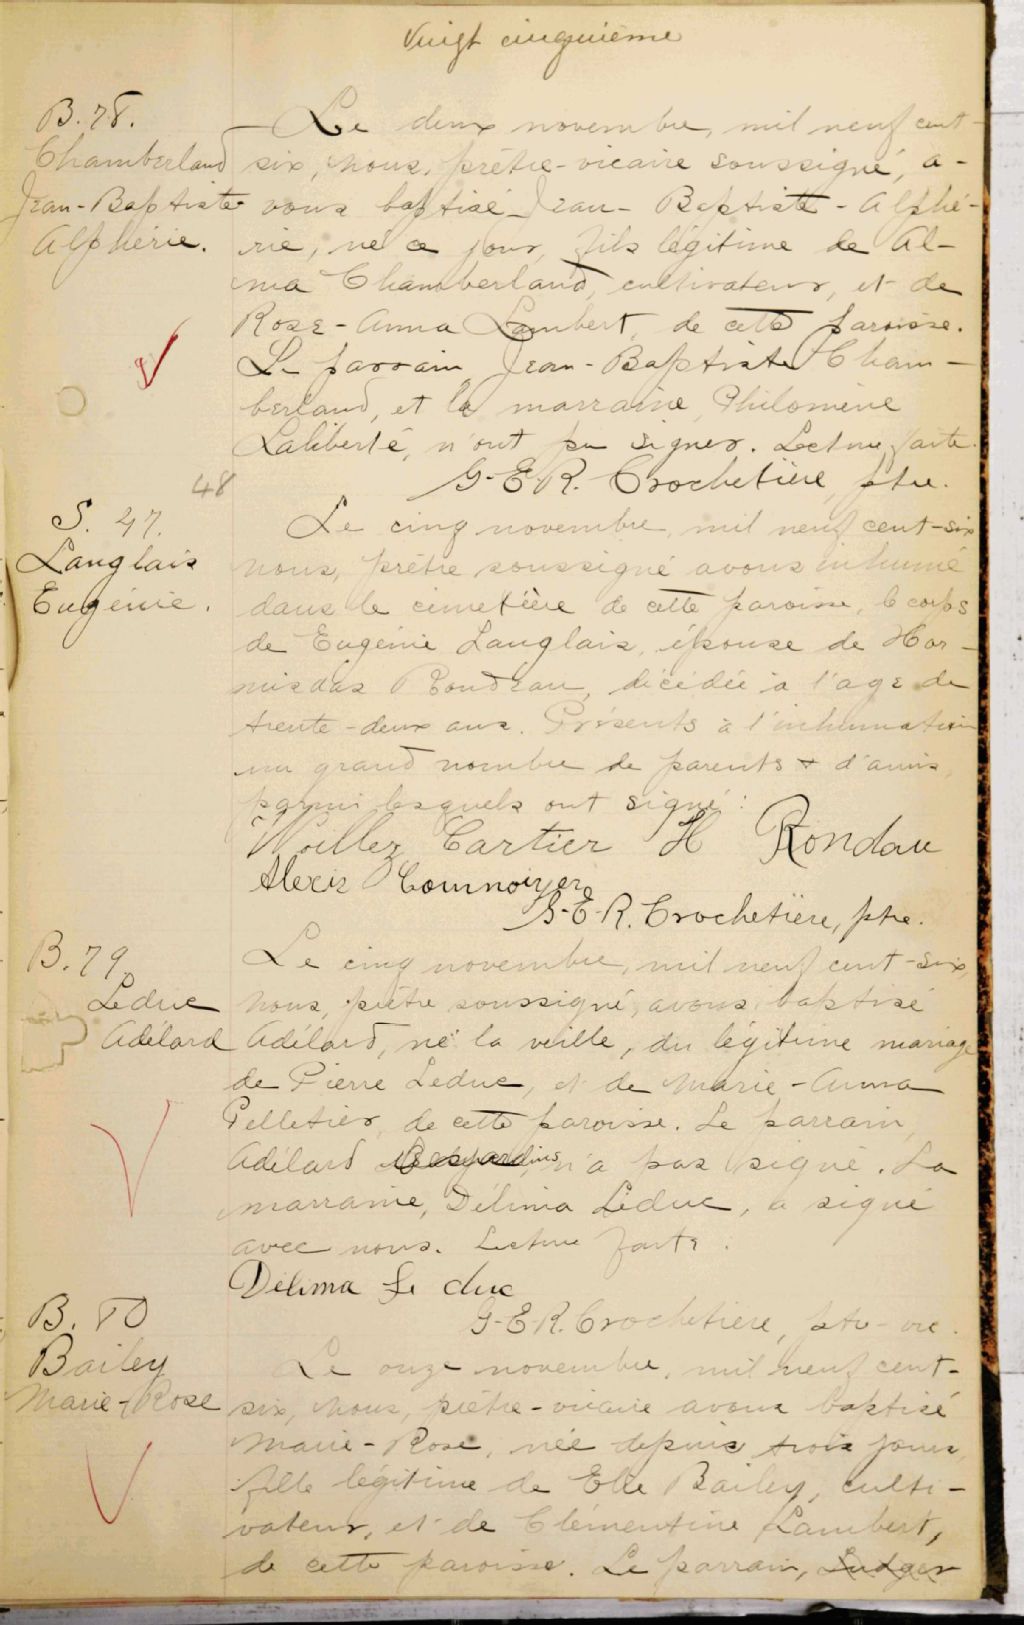 Vingt cinquième
B. 78.
Chamberland
Jean-Baptiste
Alphérie.
Le deux novembre, mil neuf cent-
six, nous, prêtre-vicaire soussigné, a-
vons baptisé Jean-Baptiste-Alphé-
rie, né ce jour, fils légitime de Al-
ma Chamberland, cultivateur, et de
Rose-Anna Lambert, de cette paroisse.
Le parrain Jean-Baptiste Cham-
berland, et la marraine, Philomène
Laliberté, n'ont pu signer. Lecture faite.
G-E-R. Crochetière, ptre.
48
S. 47.
Langlais
Eugénie.
Le cinq novembre, mil neuf cent-six
nous, prêtre soussigné avons inhumé
dans le cimetière de cette paroisse, le corps
de Eugénie Langlais, épouse de Hor-
misdas Rondeau, décédée à l'age de
trente-deux ans. Présents à l'inhumation
un grand nombre de parents & d'amis,
parmi lesquels ont signé:
Willez Cartier H Rondau
Alexis Cournoyer
G-E-R. Crochetière, ptre.
B. 79
Leduc
Adélard
Le cinq novembre, mil neuf cent-six,
nous, prêtre soussigné, avons baptisé
Adélard, né la veille, du légitime mariage
de Pierre Leduc, et de Marie-Anna
Pelletier, de cette paroisse. Le parrain,
Adélard Desjardins, n'a pas signé. La
marraine, Délima Leduc, a signé
avec nous. Lecture faite.
Délima Le duc
G-E-R. Crochetière, ptre-vic.
B. 80
Bailey
Marie-Rose
Le onze novembre, mil neuf cent-
six, nous, prêtre-vicaire avons baptisé
Marie-Rose, née depuis trois jours,
fille légitime de Elie Bailey, culti-
vateur, et de Clémentine Lambert,
de cette paroisse. Le parrain, Ludger